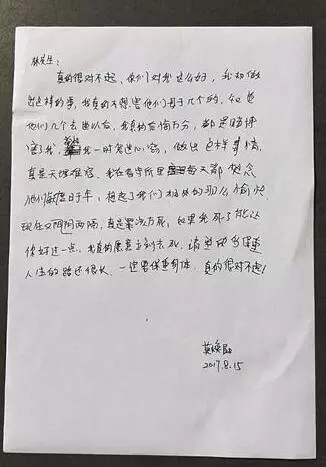 林先生:
真的很对不起,你们对我这么好,我却做
出这样的事,我真的不想害他们母子几个的,知道
他们几个去世以后,我真的后悔万分,都是赌博
害了我,我一时鬼迷心窍,做出这样事情,
真是天理难容,我在看守所里每天都想念
他们,度日于年,想起了我们相处的那么愉快
现在又阴阳两隔,真是罪该万死,如果我死了能让
你好过一点,我真的愿意立刻去死,请
人生的路还很长,一定要保重身体,真的很对不起!
莫焕晶
2017.8.15